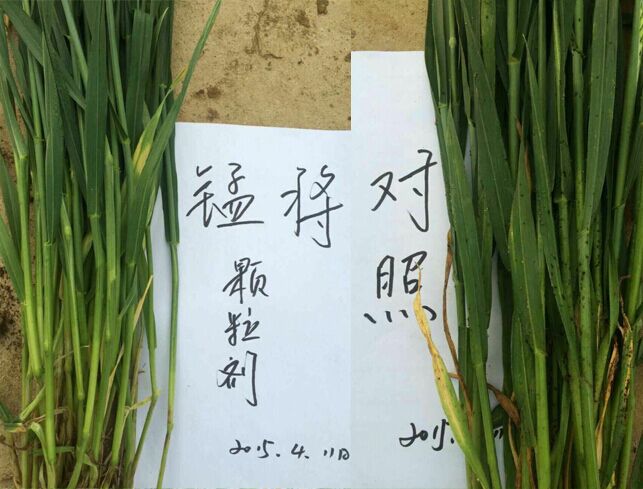 锰将
颗粒剂
2015.4.11日
对照
2015.